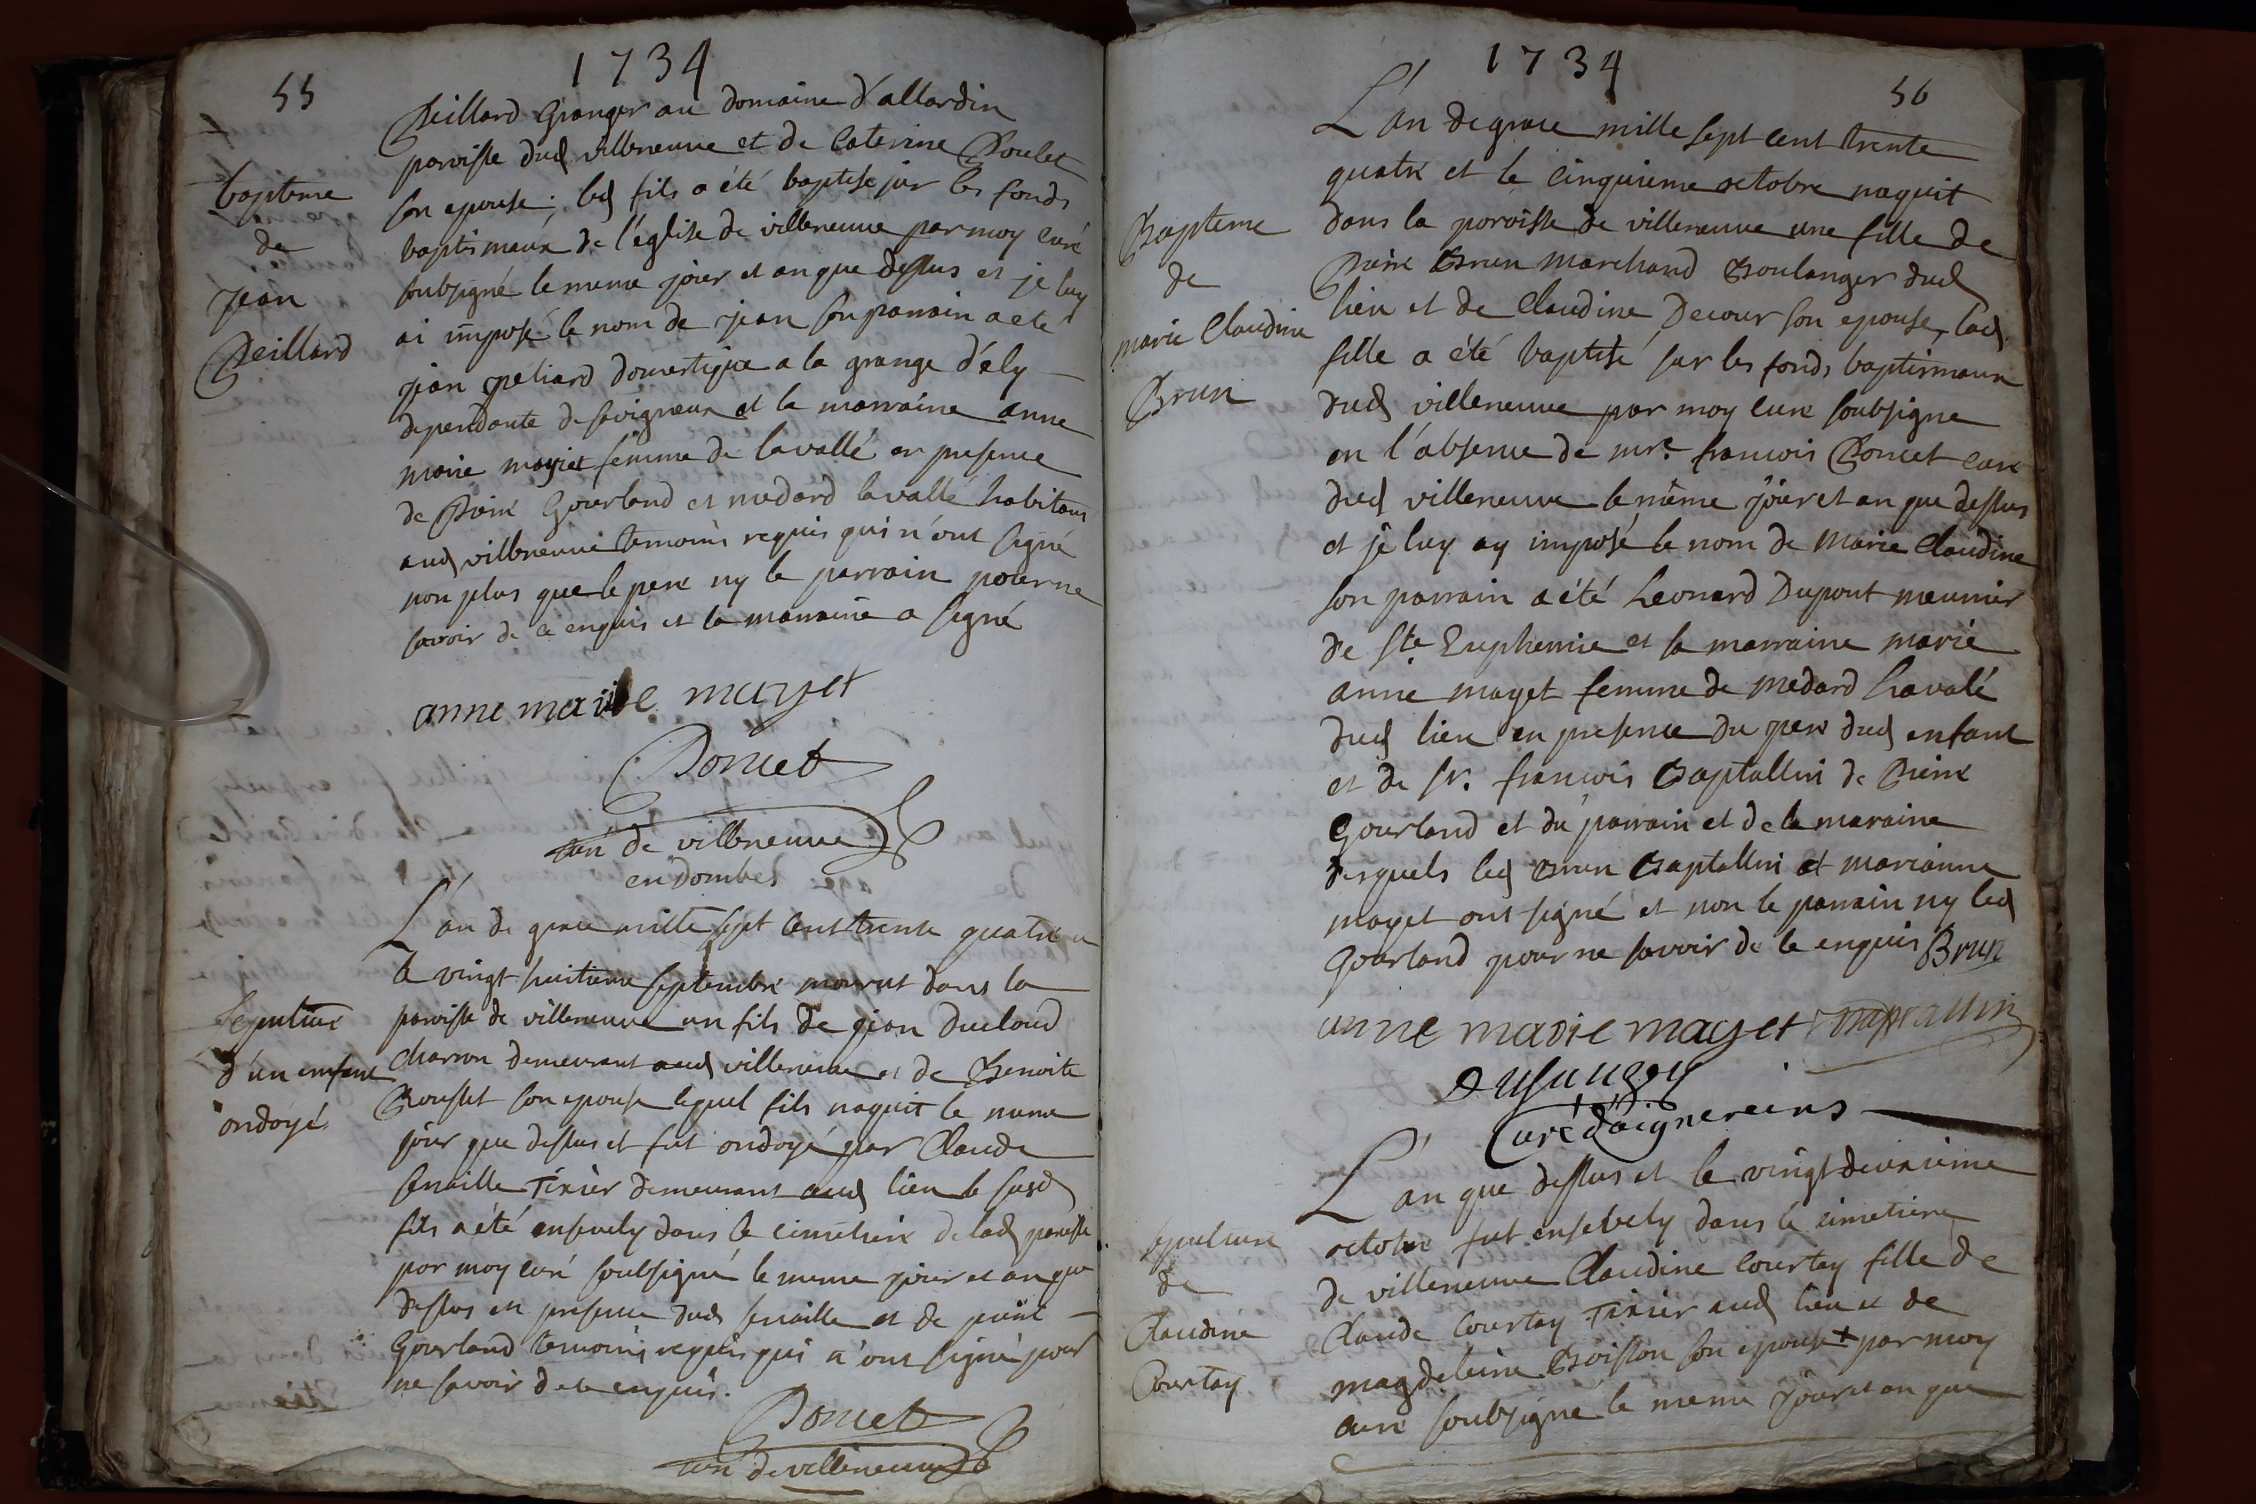 1734
55
Peillard Granger au domaine d'allardin
paroisse dud villeneuve et de Caterine Poulet
son epouse; led fils a été baptisé sur les fonds
baptismaux de l'église de villeneuve par moy curé
soubsigné le meme jour et an que dessus et je luy
ai imposé le nom de jean son parrain a eté
jean peliard domestique a la grange d'ély
dependante de savigneux et la marraine anne
marie mayet femme de lavallé en presence
de Pierre Gourland et medard lavallé habitans
aud villeneuve temoins requis qui n'ont signé
non plus que le pere ny le parrain pour ne
savoir de ce enquis et la marraine a signé
bapteme
de
jean
Peillard
anne marie mayet
Poncet
curé de villeneuve
en Dombes
L'an de grace mille sept cent trente quatre et
le vingt huitieme septembre mourut dans la
paroisse de villeneuve un fils de jean Ducloud
charron demeurant aud villeneuve et de Benoite
Rousset son epouse lequel fils naquit le meme
jour que dessus et fut ondoyé par Claude
senaille Tixier demeurant aud lieu le susd
fils a été ensevely dans le cimetiere de lad paroisse
par moy curé soubsigné le meme jour et an que
dessus en presence dud senaille et de pierre
Gourland temoins requis qui n'ont signé pour
ne savoir de ce enquis.
Sepulture
d'un enfant
ondoyé
Poncet
curé de villeneuve
1734
56
L'an de grace mille sept cent trente
quatre et le cinquieme octobre naquit
dans la paroisse de villeneuve une fille de
Pierre Brun marchand Boulanger dud
lieu et de Claudine Decour son epouse, lad
fille a été baptisé sur les fonds baptismaux
dud villeneuve par moy curé soubsigne
en l'absence de mre francois Poncet curé
dud villeneuve le même jour et an que dessus
et je luy ay imposé le nom de Marie Claudine
son parrain a été Leonard Dupont meunier
de ste Euphemie et la marraine marie
anne mayet femme de medard Lavalé
dud lieu en presence du pere dud enfant
et de sr. francois Baptallin de Pierre
Gourland et du parrain et de la maraine
desquels led Brun Baptallin et marianne
mayet ont signé et non le parrain ny led
Gourland pour ne savoir de ce enquis Brun
Bapteme
de
marie Claudine
Brun
anne marie mayet Baptallin
Dusauzey
Curé d'aignereins
L'an que dessus et le vingt deuxieme
octobre fut ensevely dans le cimetiere
de villeneuve Claudine Courtay fille de
Claude Courtay Tixier aud lieu et de
magdeleine Boisson son epouse + par moy
curé soubsigné le meme jour et an que
sepulture
de
Claudine
Courtay